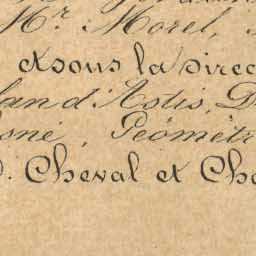 Mr Morel,
et sous la Direc
land d'Astis, D
osné, Géomètr
P. Cheval et Ch